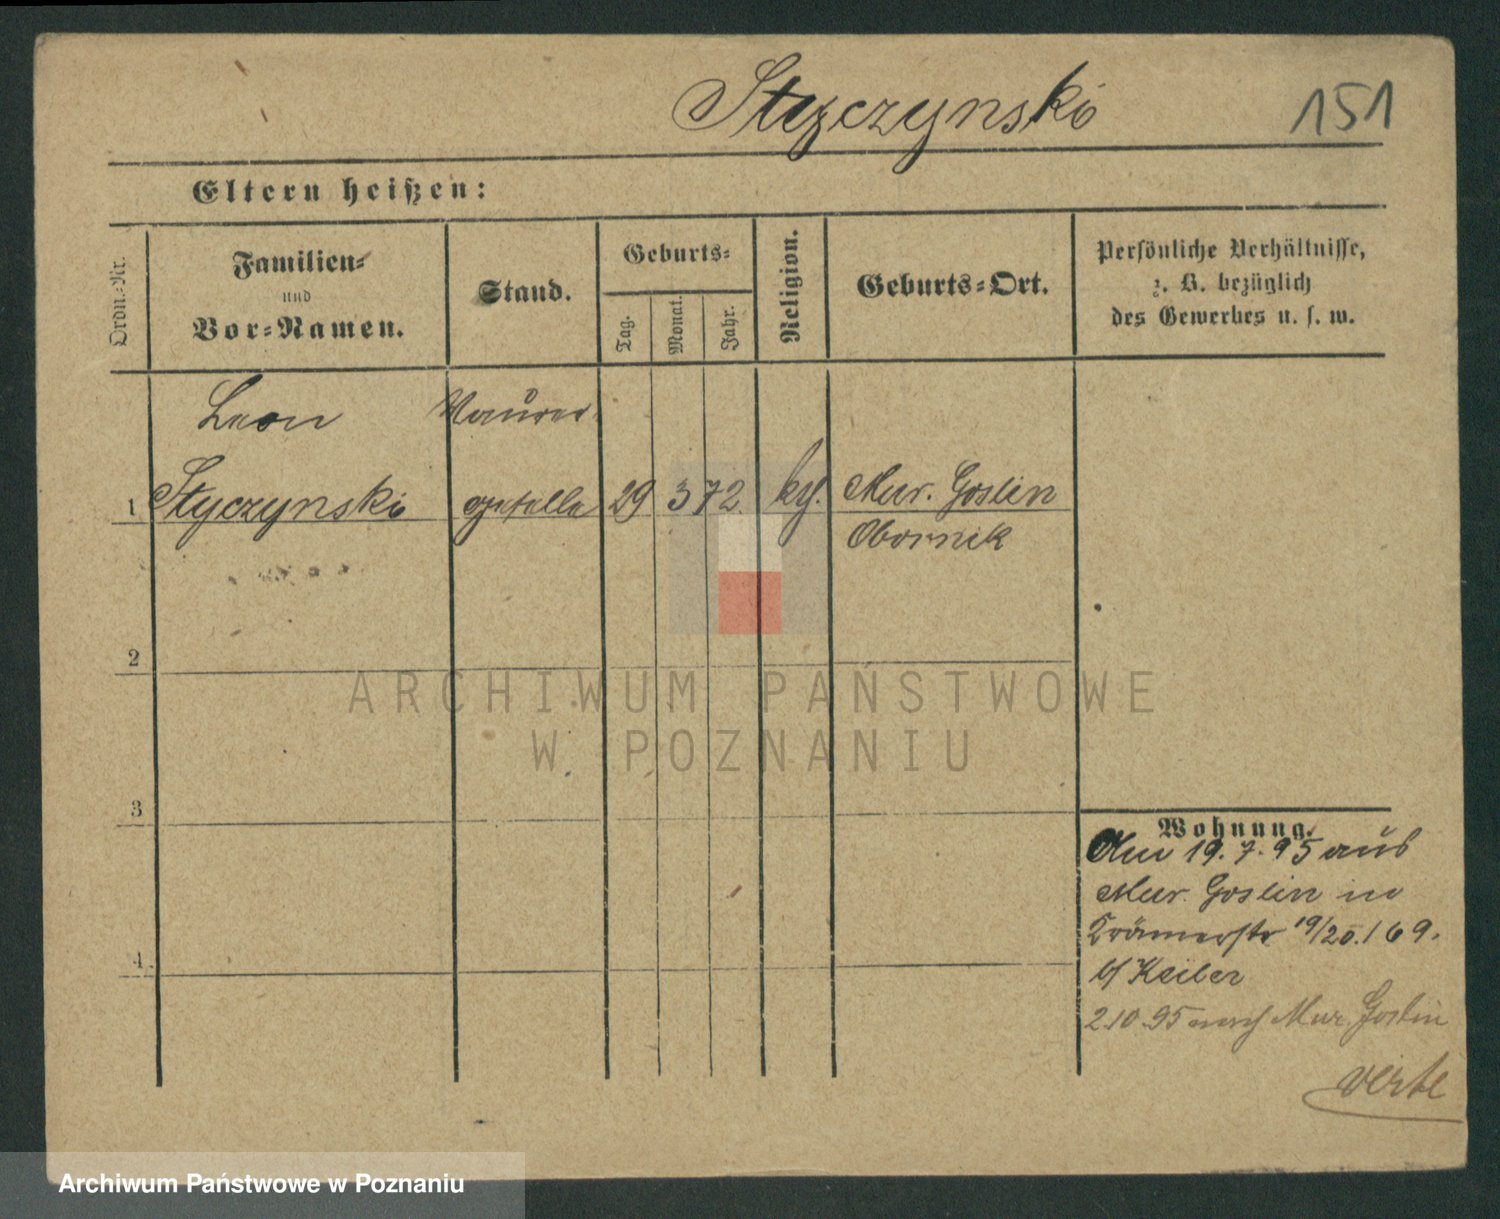 Styczynski
151
Eltern heißen:
Ordn.-Nr.
Familien-
und
Vor-Namen.
Stand.
Geburts-
Tag.
Monat.
Jahr.
Religion.
Geburts-Ort.
Persönliche Verhältnisse,
z. B. bezüglich
des Gewerbes u. s. w.
Leon Maurer
1 Styczynski geselle 29 3 72 kth. Mur. Goslin
Obornik
2
3
4
Wohnung.
Am 19.7.95 aus
Mur. Goslin in
Krämerstr 19/20. I 69.
b/ Keiler
2.10.95 nach Mur. Goslin
verte
ARCHIWUM PAŃSTWOWE
W POZNANIU
Archiwum Państwowe w Poznaniu